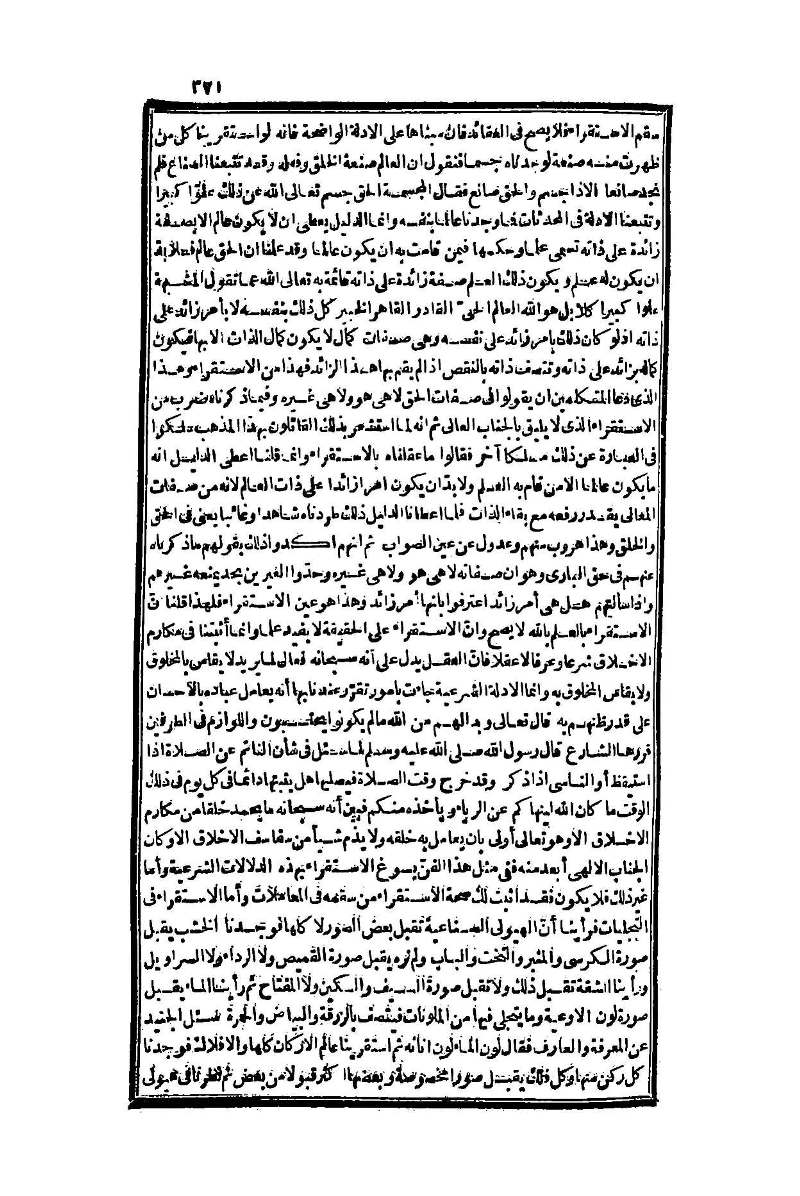 ٣٧١
سقم الاستقراء فلا يصح فى العقائد فان مبناها على الادلة الواضحة فانه لو استقرينا كل من
ظهرت منه صنعة لوجدناه جسما فنقول ان العالم صنعة الحق وفعله وقد تتبعنا الصناع فلم
نجد صانعا الا ذا جسم والحق صانع فقال المجسمة الحق جسم تعالى الله عن ذلك علوّا كبيرا
وتتبعنا الادلة فى المحدثات فما وجدنا عالما بنفسه وانما الدليل يعطى ان لا يكون عالم الا بصفة
زائدة على ذاته تسمى علما وحكمها فيمن قامت به ان يكون عالما وقد علمنا ان الحق عالم فلا بد
ان يكون له علم ويكون ذلك العلم صفة زائدة على ذاته قائمة به تعالى الله عما تقول المشبهة
علوا كبيرا كلا بل هو الله العالم الحىّ القادر القاهر الخبير كل ذلك بنفسه لا بأمر زائد على
ذاته اذ لو كان ذلك بامر زائد على نفسه وهى صفات كمال لا يكون كمال الذات الا بها فيكون
كماله بزائد على ذاته وتتصف ذاته بالنقص اذا لم يقم بها هذا الزائد فهذا من الاستقراء وهذا
الذى دعا المتكلمين ان يقولوا فى صفات الحق لا هى هو ولا هى غيره وفيما ذكرناه ضرب من
الاستقراء الذى لا يليق بالجناب العالى ثم انه لما استشعر بذلك القائلون بهذا المذهب سلكوا
فى العبارة عن ذلك مسلكا آخر فقالوا ما عقلناه بالاستقراء وانما قلنا اعطى الدليل انه
ما يكون عالما الا من قام به العلم ولا بد ان يكون امرا زائدا على ذات العالم لانه من صفات
المعانى يقدر رفعه مع بقاء الذات فلما اعطانا الدليل ذلك طردناه شاهدا وغائبا يعنى فى الحق
والخلق وهذا هروب منهم وعدول عن عين الصواب ثم انهم اكدوا ذلك بقولهم ما ذكرناه
عنهم فى حق البارى وهو ان صفاته لا هى هو ولا هى غيره وحدّوا الغيرين بحد يمنعه غيرهم
واذا سألتهم هل هى أمر زائد اعترفوا بانها أمر زائد وهذا هو عين الاستقراء فلهذا قلنا انّ
الاستقراء بالعلم بالله لا يصح وانّ الاستقراء على الحقيقة لا يفيد علما وانما أثبتنا فى مكارم
الاخلاق شرعا وعرفا لا عقلا فانّ العقل يدل على أنه سبحانه فعال لما يريد لا يقاس بالمخلوق
ولا يقاس المخلوق به وانما الادلة الشرعية جاءت بامور تقرّر عندنا بها أنه يعامل عباده بالاحسان
على قدر ظنهم به قال تعالى وبدالهم من الله مالم يكونوا يحتسبون واللوازم فى الطرفين
قررها الشارع قال رسول الله صلى الله عليه وسلم لما سئل فى شأن النائم عن الصلاة اذا
استيقظ أو الناسى اذا ذكر وقد خرج وقت الصلاة فيصليها هل يثبتها دائما فى كل يوم فى ذلك
الوقت ما كان الله لينهاكم عن الرباء ويأخذه منكم فبين أنه سبحانه ما يحمد خلقا من مكارم
الاخلاق الا وهو تعالى أولى بان يعامل به خلقه ولا يذم شيأ من سفاسف الاخلاق الا وكان
الجناب الالهى أبعد منه ففى مثل هذا الفنّ يسوغ الاستقراء بهذه الدلالات الشرعية وأما
غير ذلك فلا يكون فقد أثبت لك صحة الاستقراء من سقمه فى المعاملات وأما الاستقراء فى
التجليات فرأينا أنّ الهيولى الصناعية تقبل بعض الصور لا كلها فوجدنا الخشب يقبل
صورة الكرسى والمنبر والتخت والباب ولم نره يقبل صورة القميص ولا الرداء ولا السراويل
ورأينا الشقة تقبل ذلك ولا تقبل صورة السيف والسكين ولا المفتاح ثم رأينا الماء يقبل
صورة لون الاوعية وما يتجلى فيها من الملونات فيتصف بالزرقة والبياض والحمرة سئل الجنيد
عن المعرفة والعارف فقال لون الماء لون انائه ثم استقرينا عالم الاركان كلها والافلاك فوجدنا
كل ركن منها وكل فلك يقبل صورا مخصوصة وبعضها اكثر قبولا من بعض ثم نظرنا فى هيولى